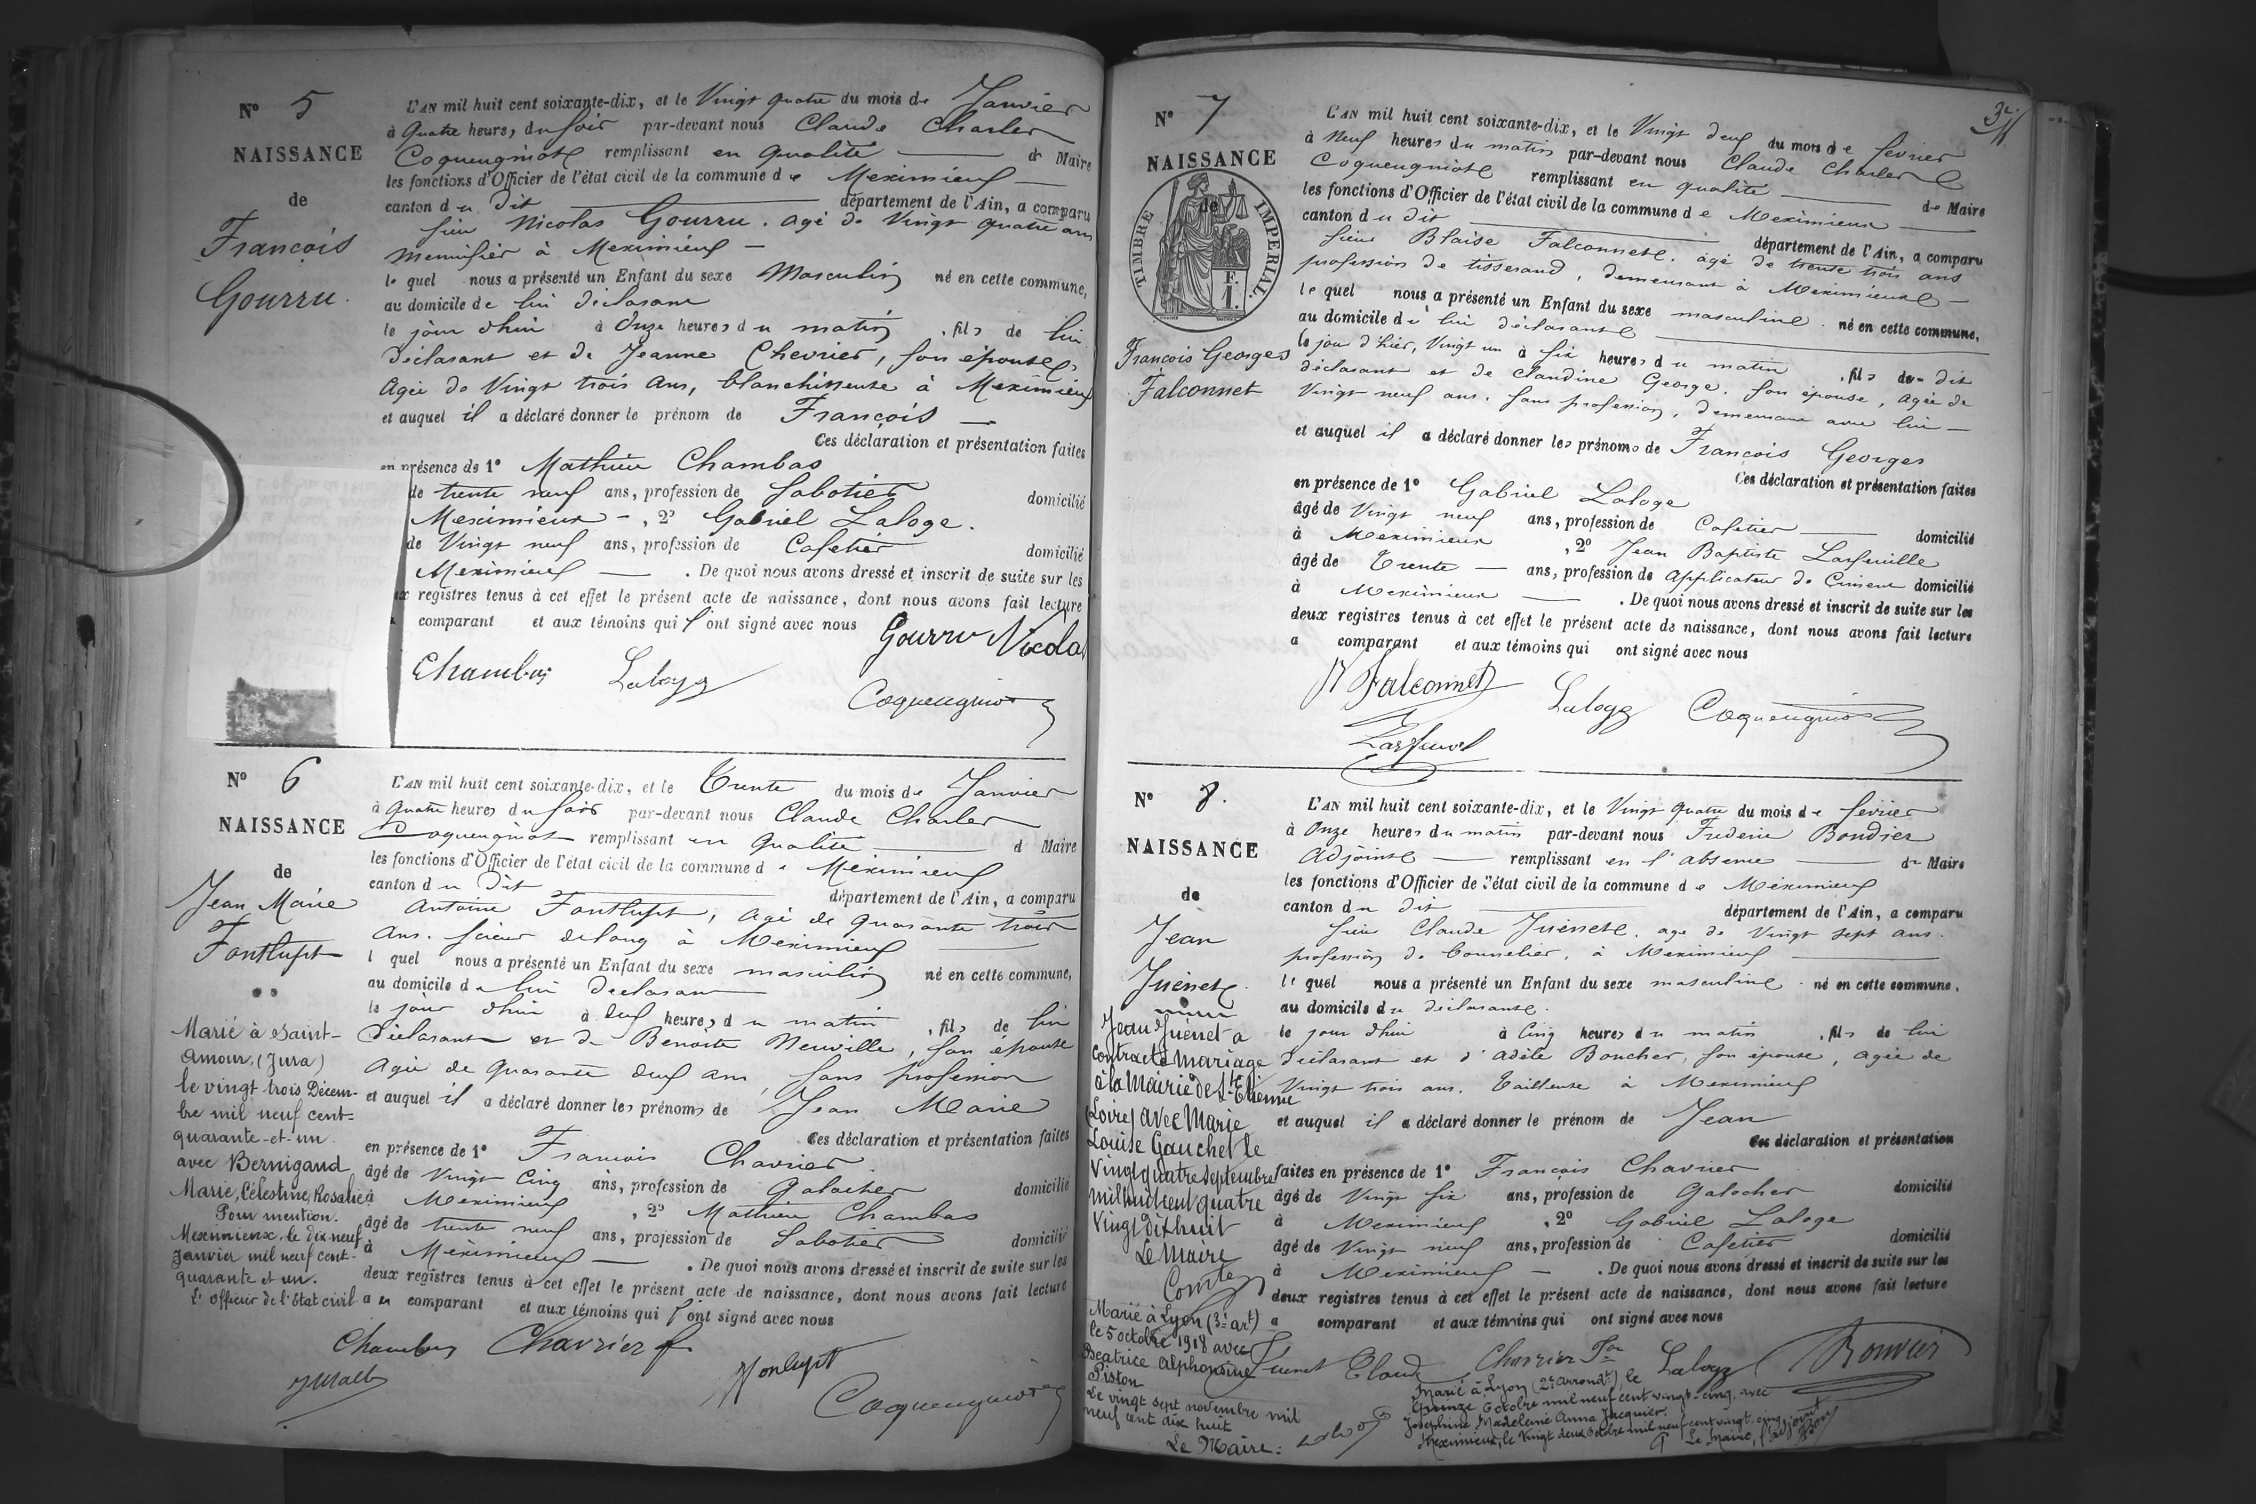 N° 5
NAISSANCE
de
François
Gourru.
L'AN mil huit cent soixante-dix, et le Vingt quatre du mois de Janvier
à Quatre heures du soir par-devant nous Claude Charles
Coqueugniot remplissant en qualité de Maire
les fonctions d'Officier de l'état civil de la commune de Meximieux
canton du dit département de l'Ain, a comparu
sieur Nicolas Gourru. agé de Vingt quatre ans
menuisier à Meximieux
le quel nous a présenté un Enfant du sexe Masculin né en cette commune,
au domicile de lui déclarant
le jour d'hui à Onze heures du matin, fils de lui
déclarant et de Jeanne Chevrier, son épouse,
agée de Vingt trois ans, blanchisseuse à Meximieux
et auquel il a déclaré donner le prénom de François
Ces déclaration et présentation faites
en présence de 1° Mathieu Chambas
de trente neuf ans, profession de Sabotier domicilié
Meximieux, 2° Gabriel Laloge.
de Vingt neuf ans, profession de Cafetier domicilié
Meximieux. De quoi nous avons dressé et inscrit de suite sur les
registres tenus à cet effet le présent acte de naissance, dont nous avons fait lecture
comparant et aux témoins qui l'ont signé avec nous Gourru Nicolas
Chambas Laloge
Coqueugniot
N° 6
NAISSANCE
de
Jean Marie
Fontlupt
L'AN mil huit cent soixante-dix, et le Trente du mois de Janvier
à Quatre heures du soir par-devant nous Claude Charles
Coqueugniot remplissant en Qualité d Maire
les fonctions d'Officier de l'état civil de la commune d Meximieux
canton du Dit département de l'Ain, a comparu
Antoine Fontlupt, agé de quarante trois
ans. scieur de long à Meximieux
l quel nous a présenté un Enfant du sexe masculin né en cette commune,
au domicile de lui déclarant
le jour d'hui à deux heures du matin, fils de lui
déclarant et de Benoite Neuville, son épouse
agée de quarante deux ans, sans profession
et auquel il a déclaré donner les prénoms de Jean Marie
Ces déclaration et présentation faites
en présence de 1° François Chavrier
âgé de Vingt Cinq ans, profession de Galocher domicilié
à Meximieux, 2° Mathieu Chambas
âgé de trente neuf ans, profession de Sabotier domicilié
à Meximieux. De quoi nous avons dressé et inscrit de suite sur les
deux registres tenus à cet effet le présent acte de naissance, dont nous avons fait lecture
a comparant et aux témoins qui l'ont signé avec nous
Marié à Saint-
Amour, (Jura)
le vingt-trois Décem-
bre mil neuf cent-
quarante-et-un.
avec Bernigaud
Marie, Célestine, Rosalie
Pour mention.
Meximieux, le dix neuf
Janvier mil neuf cent-
quarante et un.
L'officier de l'état civil
Chambas Chavrier f.
Fontlupt
Coqueugniot
N° 7
NAISSANCE
de
TIMBRE IMPERIAL.
François Georges
Falconnet
L'AN mil huit cent soixante-dix, et le Vingt deux du mois de février
à Neuf heures du matin par-devant nous Claude Charles
Coqueugniot remplissant en qualité de Maire
les fonctions d'Officier de l'état civil de la commune de Meximieux
canton du dit département de l'Ain, a comparu
sieur Blaise Falconnet. agé de trente trois ans
profession de tisserand, demeurant à Meximieux
le quel nous a présenté un Enfant du sexe masculine. né en cette commune,
au domicile de lui déclarant
le jour d'hier, Vingt un à six heures du matin, fils de dit
déclarant et de Claudine George, son épouse, agée de
Vingt neuf ans. sans profession, demeurant avec lui
et auquel il a déclaré donner les prénoms de François Georges
Ces déclaration et présentation faites
en présence de 1° Gabriel Laloge
âgé de Vingt neuf ans, profession de Cafetier domicilié
à Meximieux, 2° Jean Baptiste
âgé de Trente ans, profession de applicateur de Ciment domicilié
à Meximieux. De quoi nous avons dressé et inscrit de suite sur les
deux registres tenus à cet effet le présent acte de naissance, dont nous avons fait lecture
a comparant et aux témoins qui ont signé avec nous
B Falconnet Laloge Coqueugniot
N° 8.
NAISSANCE
de
Jean
Juénet.
L'AN mil huit cent soixante-dix, et le Vingt quatre du mois de février
à Onze heures du matin par-devant nous Frederic
Adjoint remplissant en l'absence du Maire
les fonctions d'Officier de l'état civil de la commune de Meximieux
canton du dit département de l'Ain, a comparu
sieur Claude Juénet. age de Vingt sept ans.
profession de Tonnelier, à Meximieux
le quel nous a présenté un Enfant du sexe masculine. né en cette commune,
au domicile du déclarant.
le jour d'hui à Cinq heures du matin, fils de lui
déclarant et d'Adèle Boucher, son épouse, agée de
Vingt trois ans. Tailleuse à Meximieux
et auquel il a déclaré donner le prénom de Jean
Ces déclaration et présentation
faites en présence de 1° François Chavrier
âgé de Vingt six ans, profession de Galocher domicilié
à Meximieux, 2° Gabriel Laloge
âgé de Vingt neuf ans, profession de Cafetier domicilié
à Meximieux. De quoi nous avons dressé et inscrit de suite sur les
deux registres tenus à cet effet le présent acte de naissance, dont nous avons fait lecture
a comparant et aux témoins qui ont signé avec nous
Jean Juénet a
contracté mariage
à la Mairie de St Etienne
(Loire) avec Marie
Louise Gauchet le
Vingt quatre Septembre
mil huit cent quatre
Vingt dix huit
Le Maire
Marié à Lyon (3e art)
le 5 octobre 1918 avec
Beatrice Alphonsine
Piston
Le vingt sept novembre mil
neuf cent dix huit
Le Maire:
Juenet Claude Chavrier Laloge Bouvier
Marié à Lyon (2e arrondt) le
quinze Octobre mil neuf cent vingt-cinq avec
Joséphine Madeleine Anna Jacquier.
Meximieux, le vingt deux Octobre mil neuf cent vingt cinq
Le Maire,